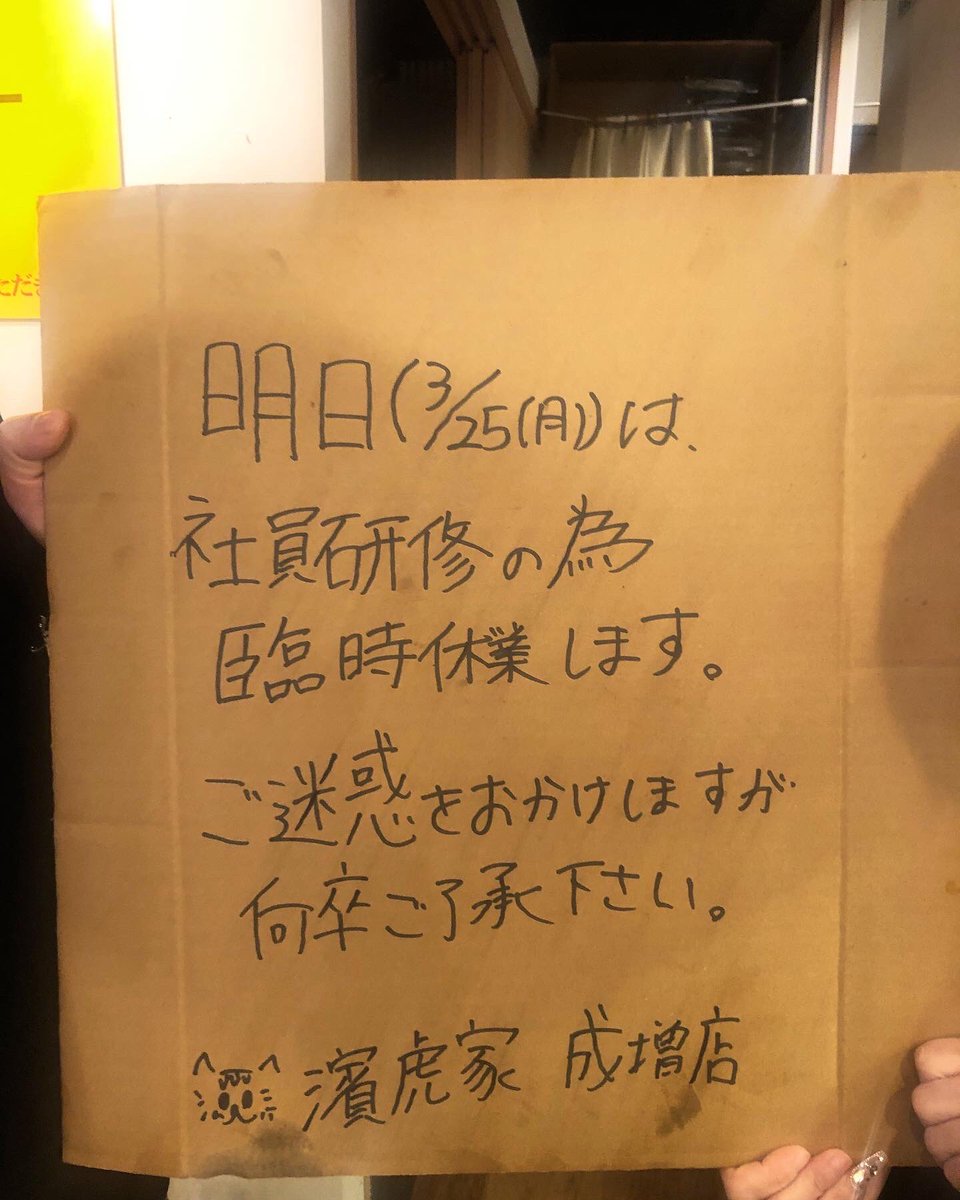 ただき
明日(3/25(月))は、
社員研修の為
臨時休業します。
ご迷惑をおかけしますが
何卒ご了承下さい。
濱虎家 成増店